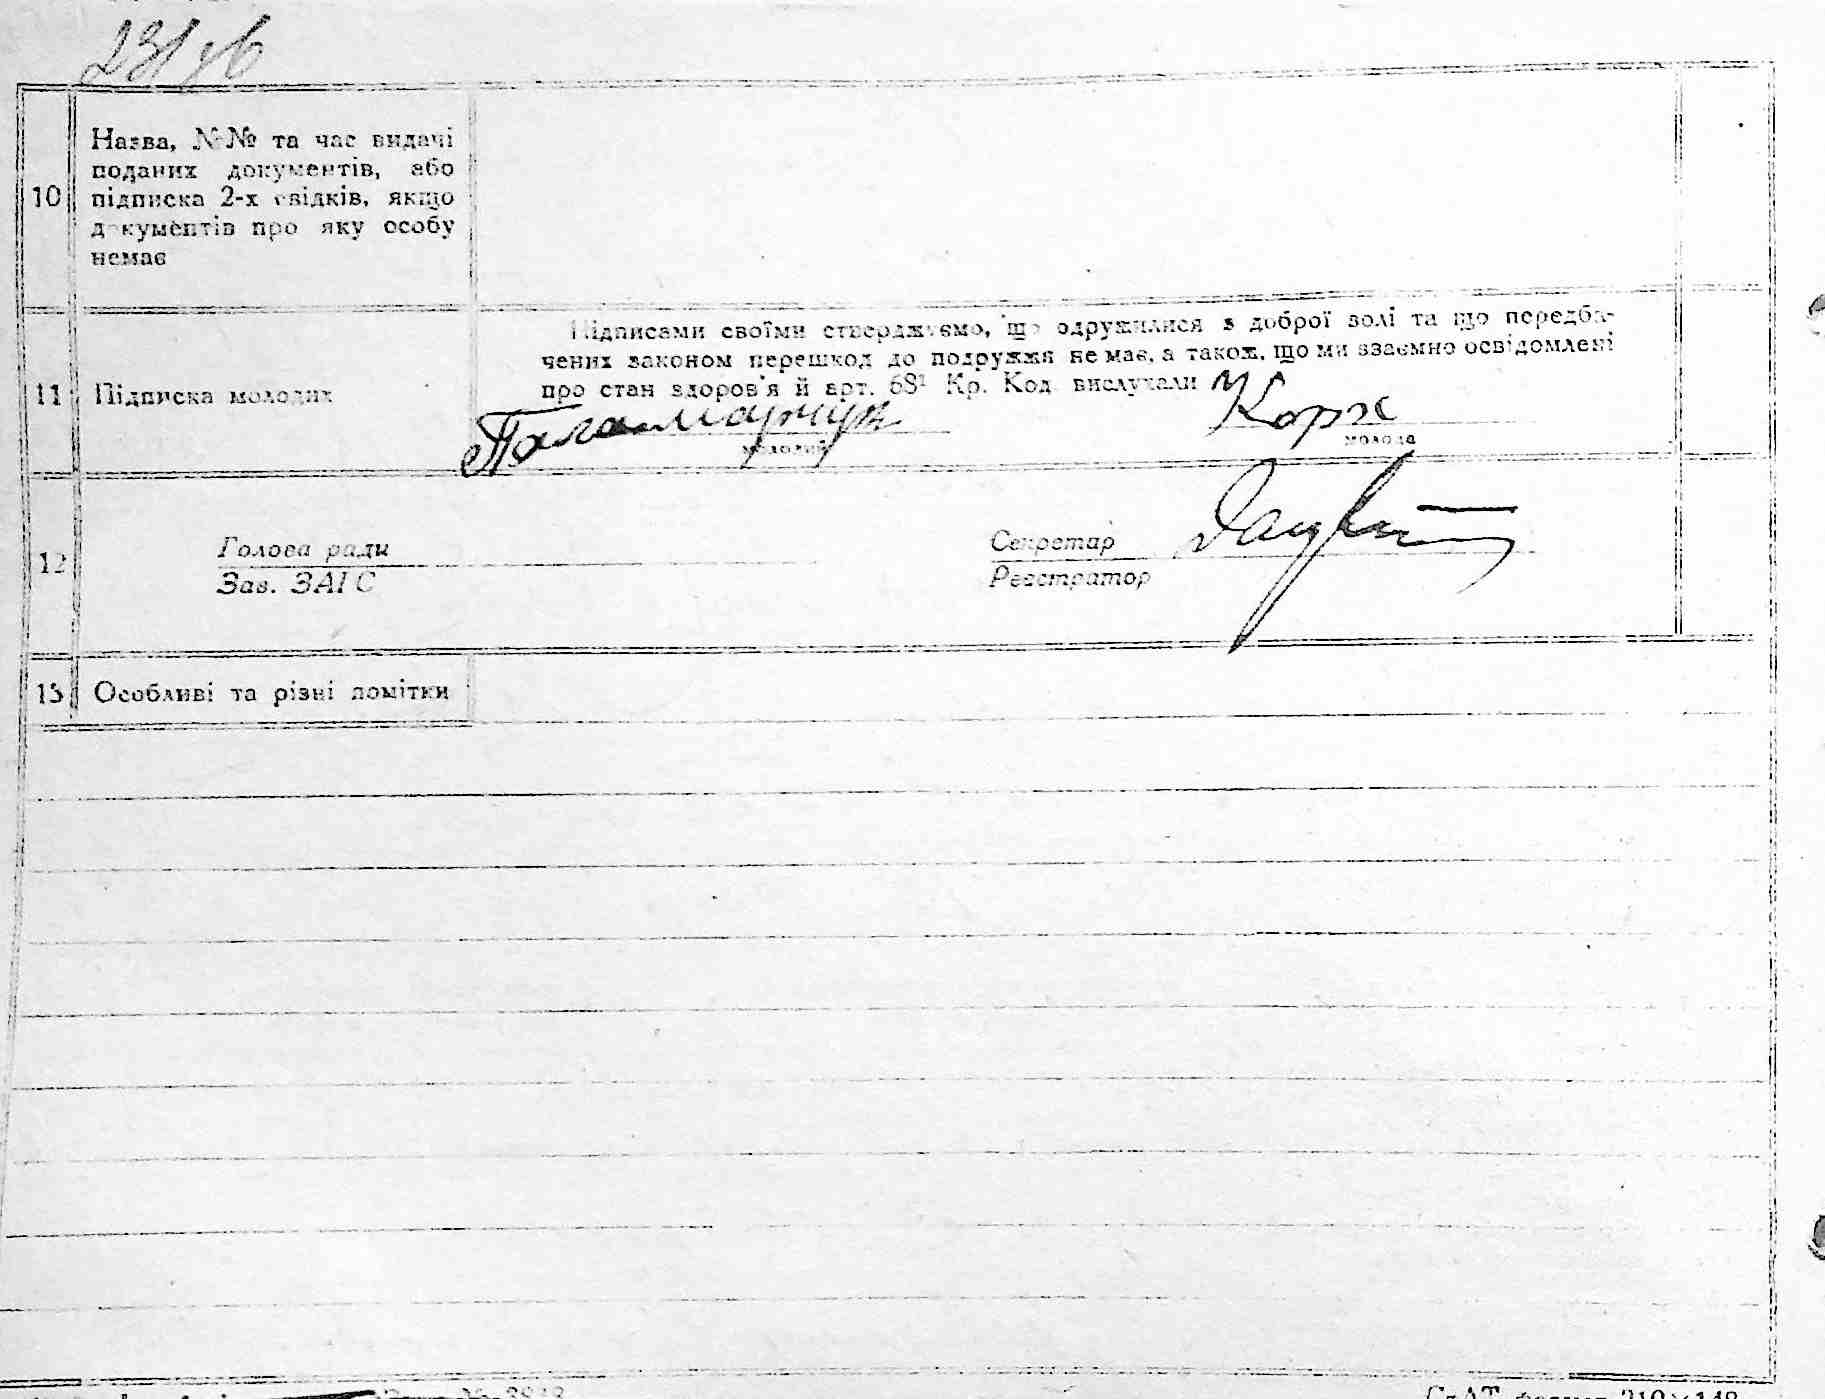 10
Назва, №№ та час видачі
поданих документів, або
підписка 2-х свідків, якщо
документів про яку особу
немає
11
Підписка молодих
Підписами своїми стверджуємо, що одружилися з доброї волі та що передба-
чених законом перешкод до подружжя немає, а також, що ми взаємно освідомлені
про стан здоров'я й арт. 68¹ Кр. Код вислухали
Паламарчук
Корж
молодий
молода
12
Голова ради
Зав. ЗАГС
Секретар
Реєстратор
13
Особливі та різні помітки